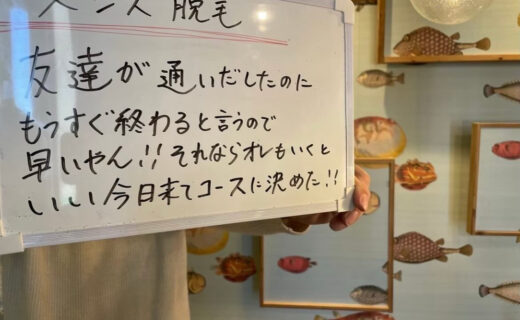 メンズ脱毛
友達が通いだしたのに
もうすぐ終わると言うので
早いやん!!それならオレもいくと
いい今日来てコースに決めた!!